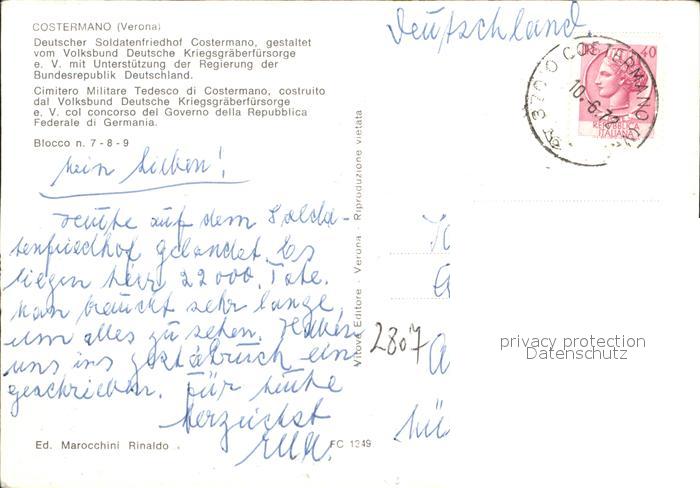 COSTERMANO (Verona)
Deutscher Soldatenfriedhof Costermano, gestaltet
vom Volksbund Deutsche Kriegsgräberfürsorge
e. V. mit Unterstützung der Regierung der
Bundesrepublik Deutschland.
Cimitero Militare Tedesco di Costermano, costruito
dal Volksbund Deutsche Kriegsgräberfürsorge
e. V. col concorso del Governo della Repubblica
Federale di Germania.
Blocco n. 7 - 8 - 9
Mein Lieben!
Heute auf dem Solda-
tenfriedhof gelandet. Es
liegen hier 22000 Tote.
Man braucht sehr lange
um alles zu sehen. Haben
uns ins Gästebuch ein
geschrieben. Für heute
herzlichst
Ed. Marocchini Rinaldo
FC 1249
Vitove Editore - Verona - Riproduzione vietata
Deutschland
37010 COSTERMANO
10.6.72
40
REPUBBLICA
ITALIANA
2807
privacy protection
Datenschutz